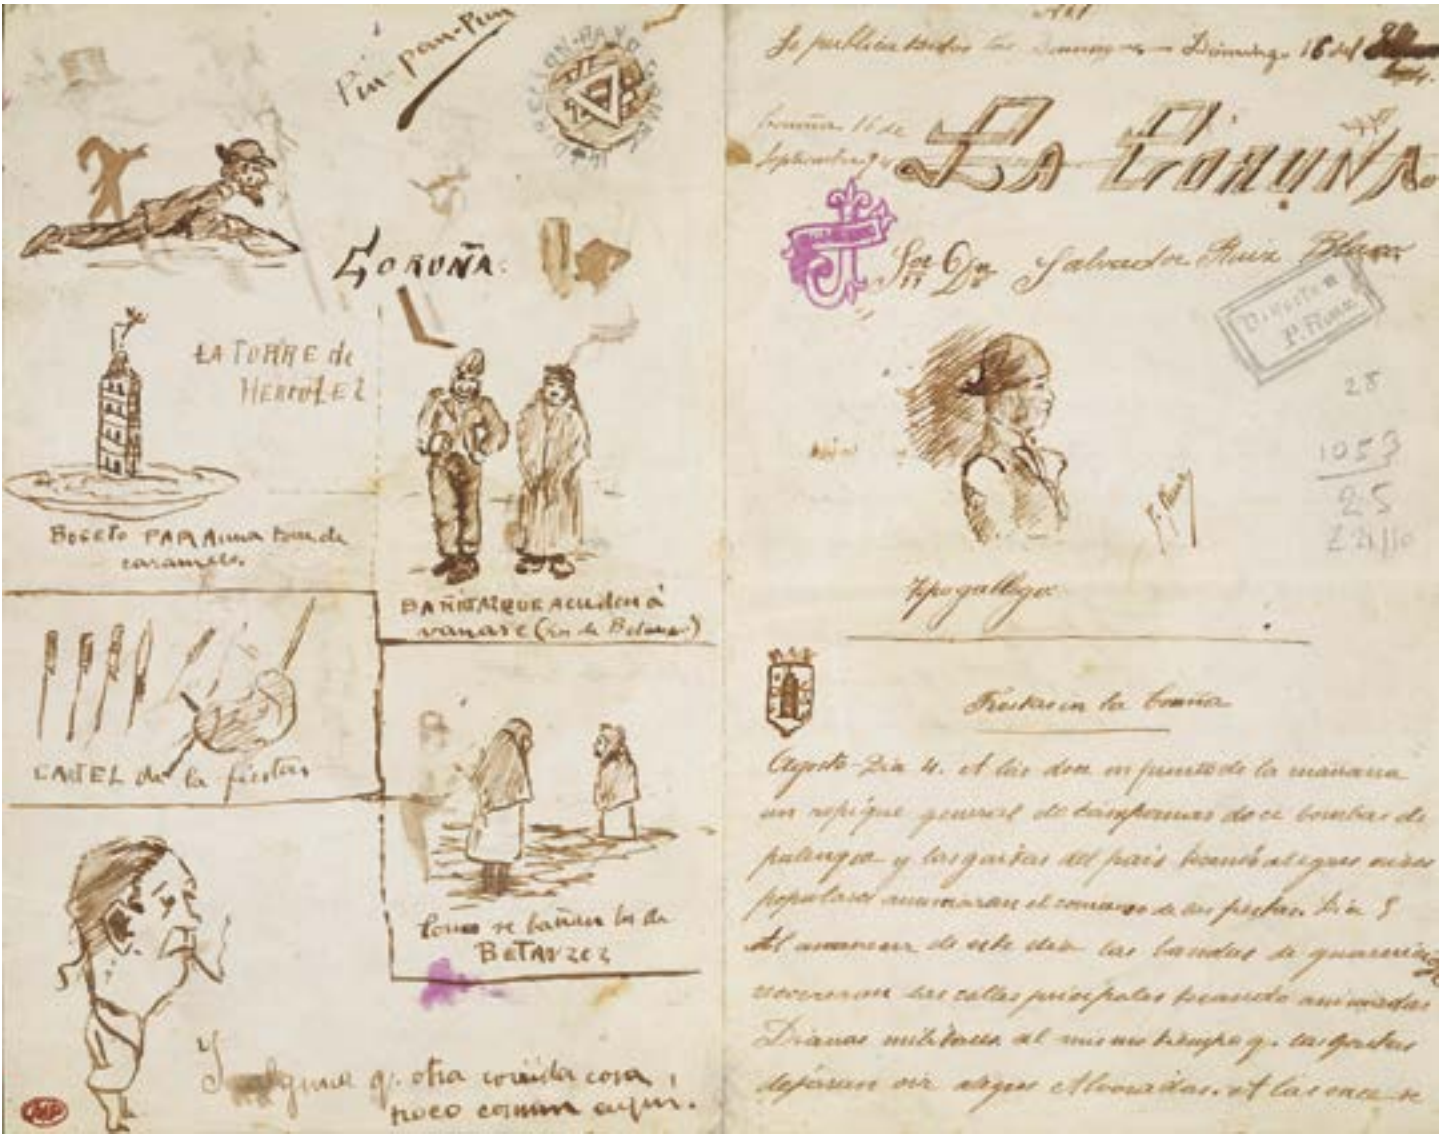 Pin-pan-Pun
CORUÑA.
LA TORRE de
HERCULEZ
BOCETO PARA una torre de
caramelo.
BAÑISTAS QUE ACUDEN á
vanarse (los de Betanzos)
CARTEL de la fiestas
Como se bañan los de
BETANZEZ
Y alguna q. otra corrida cosa,
poco comun aqui.
MP
Se publica todos los Domingos — Domingo 16 del
Coruña 16 de
Septiembre 94
LA CORUÑA.
Sor Dn Salvador Ruiz Blasco
P. Ruiz
28
1053
25
P. Ruiz
Tipo gallego
Fiestas en la Coruña
Agosto - Dia 4. A las doce en punto de la mañana
un repique general de campanas doce bombas de
palenque y las gaitas del pais tocando alegres aires
populares anunciaran el comienzo de las fiestas. Dia 5
Al amanecer de este dia las bandas de
recorreran las calles principales tocando animadas
Dianas militares al mismo tiempo q. las gaitas
dejaran oir alegres Alvoradas. A las once se